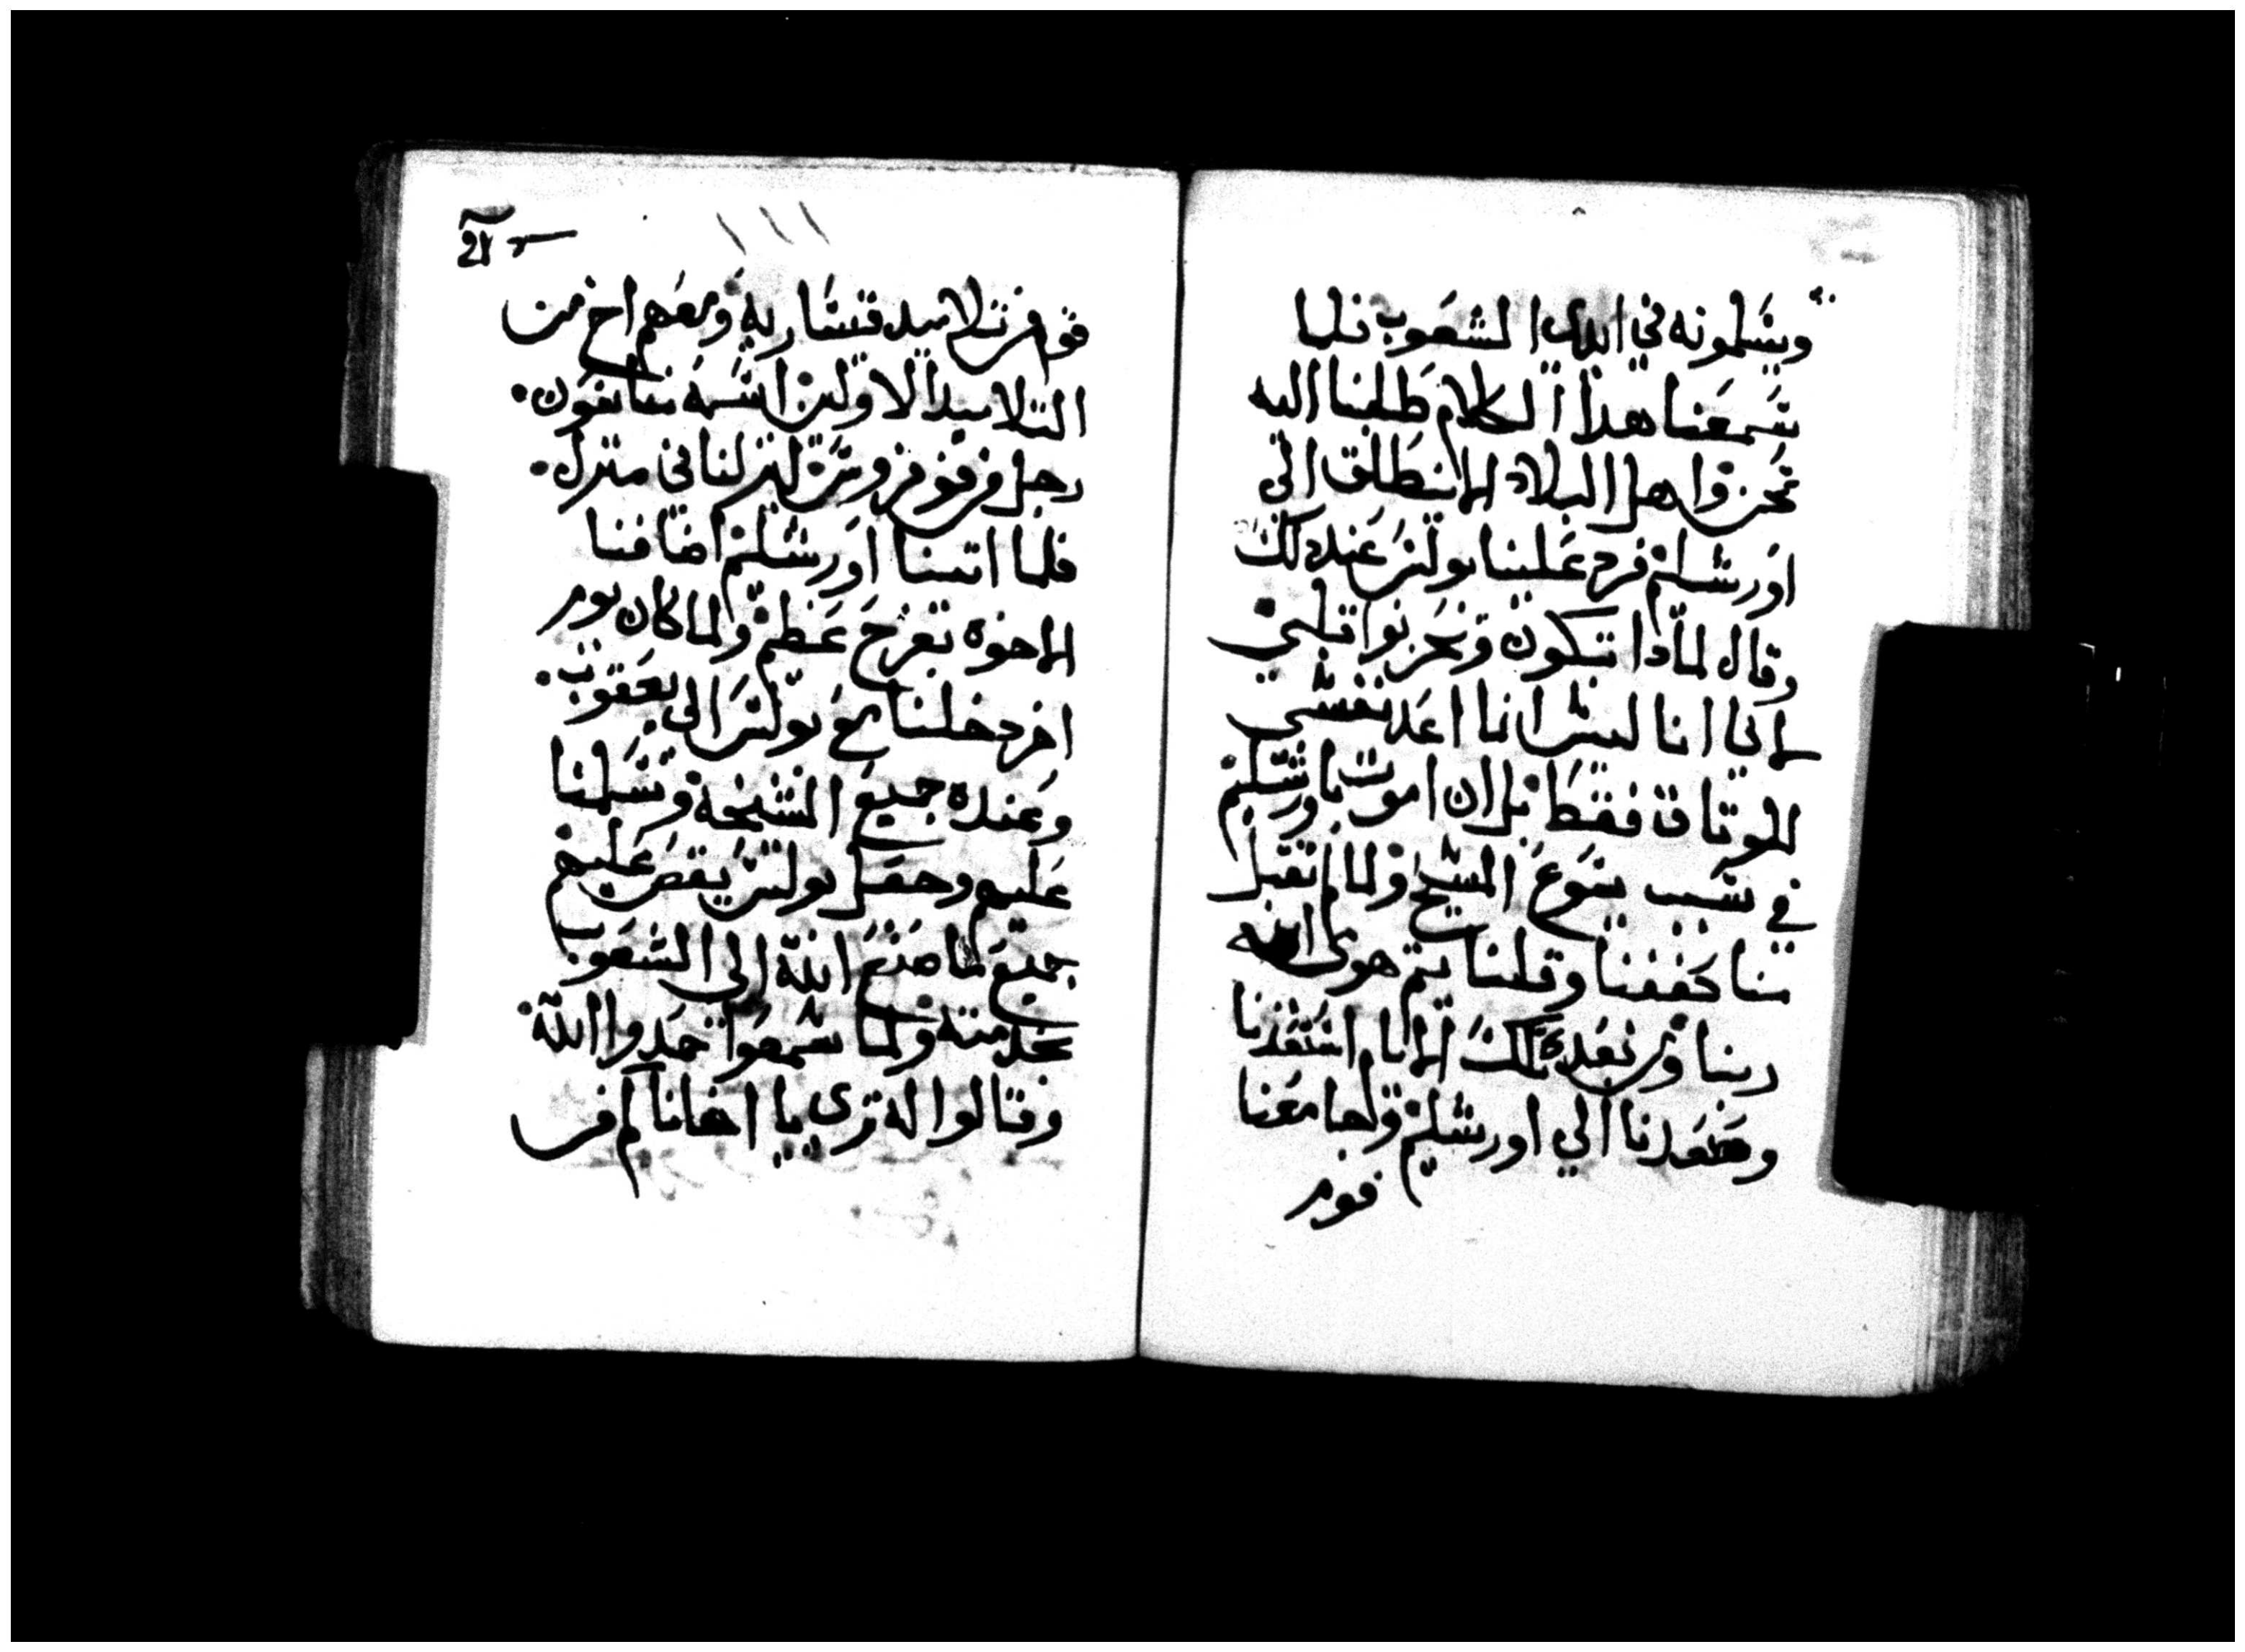 ويسلمونه في ايدي الشعوب فلما
سمعنا هدا الكلام طلبنا اليه
نحن واهل البلاد الا ينطلق الي
اورشليم فرد علينا بولس عند دلك
وقال لمادا تبكون وتحزنوا قلبي
لاني انا ليس انا اعد نفسي
للوتاق فقط بل ان اموت باورشليم
في سبب يسوع المسيح ولما لم تقبل
منا كففنا وقلنا يتم هوي الله
ربنا ومن بعد تلك الايام استعدنا
وصعدنا الي اورشليم وجا معنا
قوم
قوم من تلاميد قيساريه ومعهم اخ من
التلاميد الاولين اسمه مناسون
رجل من قوم قبرس لينزلنا في منزله
فلما اتينا اورشليم اضافنا
الاخوه بفرح عظيم ولما كان يوم
اخر دخلنا مع بولس الي يعقوب
وعنده جميع الشيخة وسلمنا
عليهم وجعل بولس يقص عليهم
جميع ما صنع الله الي الشعوب
بخدمته ولما سمعوا حمدوا الله
وقالوا له تري يا اخانا كم من